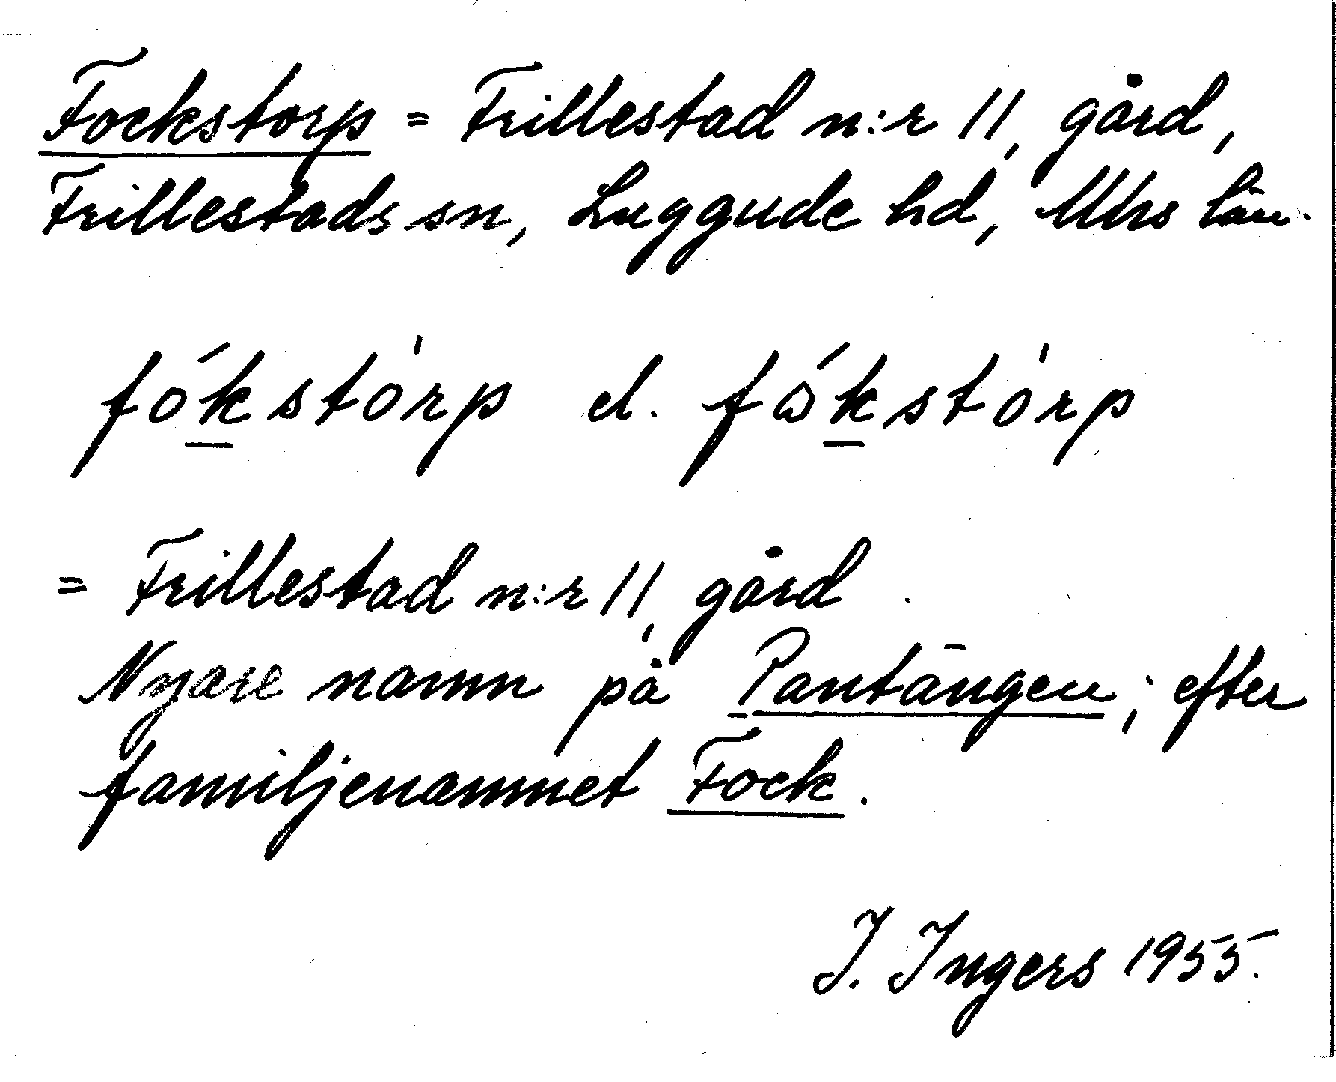 Fockstorp = Frillestad n:r 11, gård,
Frillestads sn, Luggude hd, Mhs län.
fók̲stòrp el. fɷ́k̲stòrp
= Frillestad n:r 11, gård.
Nyare namn på Pantängen; efter
familjenamnet Fock.
I. Ingers 1955.